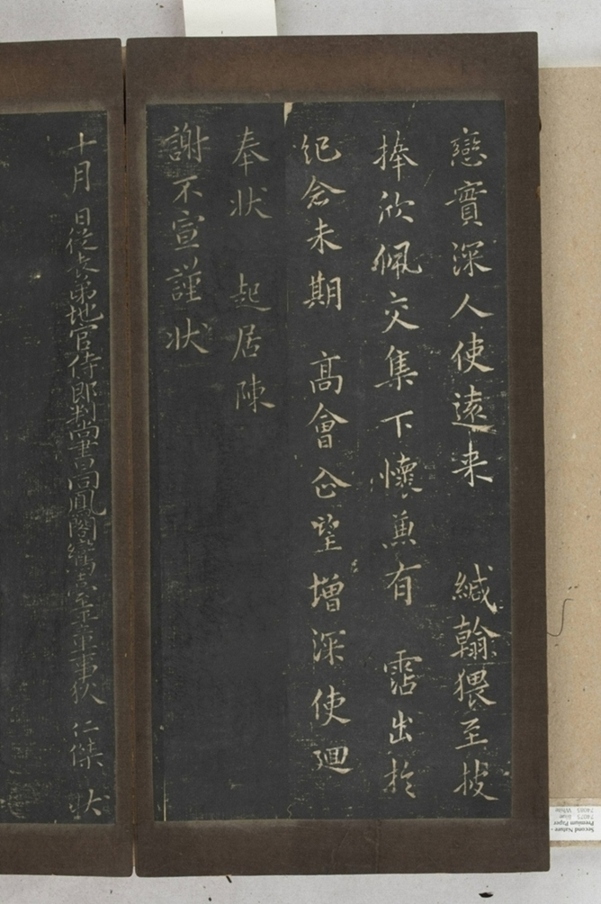 戀實深人使遠来 緘翰猥至披
捧欣佩交集下懷兼有 霑出於
紀念未期 高會企望增深使迴
奉状 起居陳
謝不宣謹状
十月 日從表弟地官侍郎判尚書同鳳閣鸞臺平章事狄 仁傑 状
Second Nature -
Premium Paper